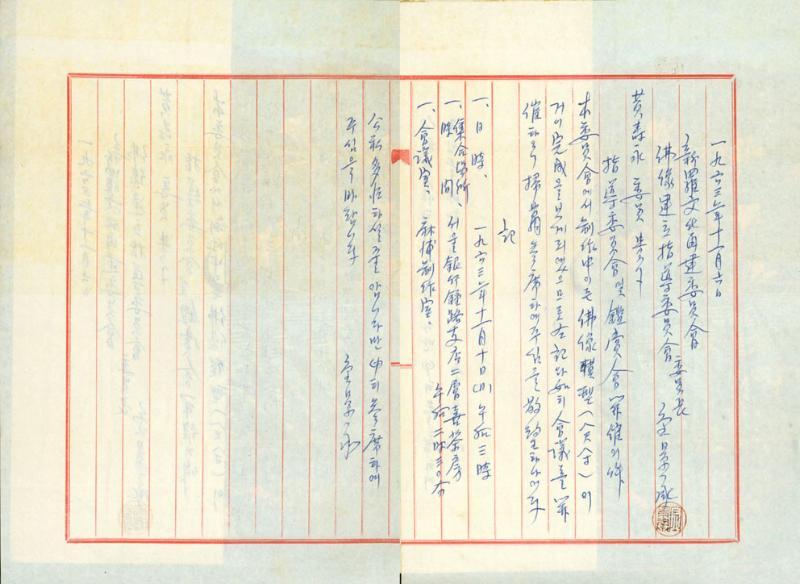 一九六三年十一月六日
新羅文化再建委員會
佛像建立指導委員會 委員長 金景承
黃壽永 委員 貴下
指導委員會 및 鑑賞會 開催의 件
本委員會에서 制作中이든 佛像模型(八尺)이
거이 完成을 보게 되었으므로 左記와 如히 會議를 開
催하오니 掃萬參席하여 주심을
記
一, 日時, 一九六三年十一月十日(日) 午后三時
一, 集合場所, 서울銀行鍾路支店二層 茶房
時間, 午后二時三〇分
一, 會議室, 麻浦制作室,
公私多忙하실줄 아옵니다만 參席하여
주심을 바랍니다
金景承